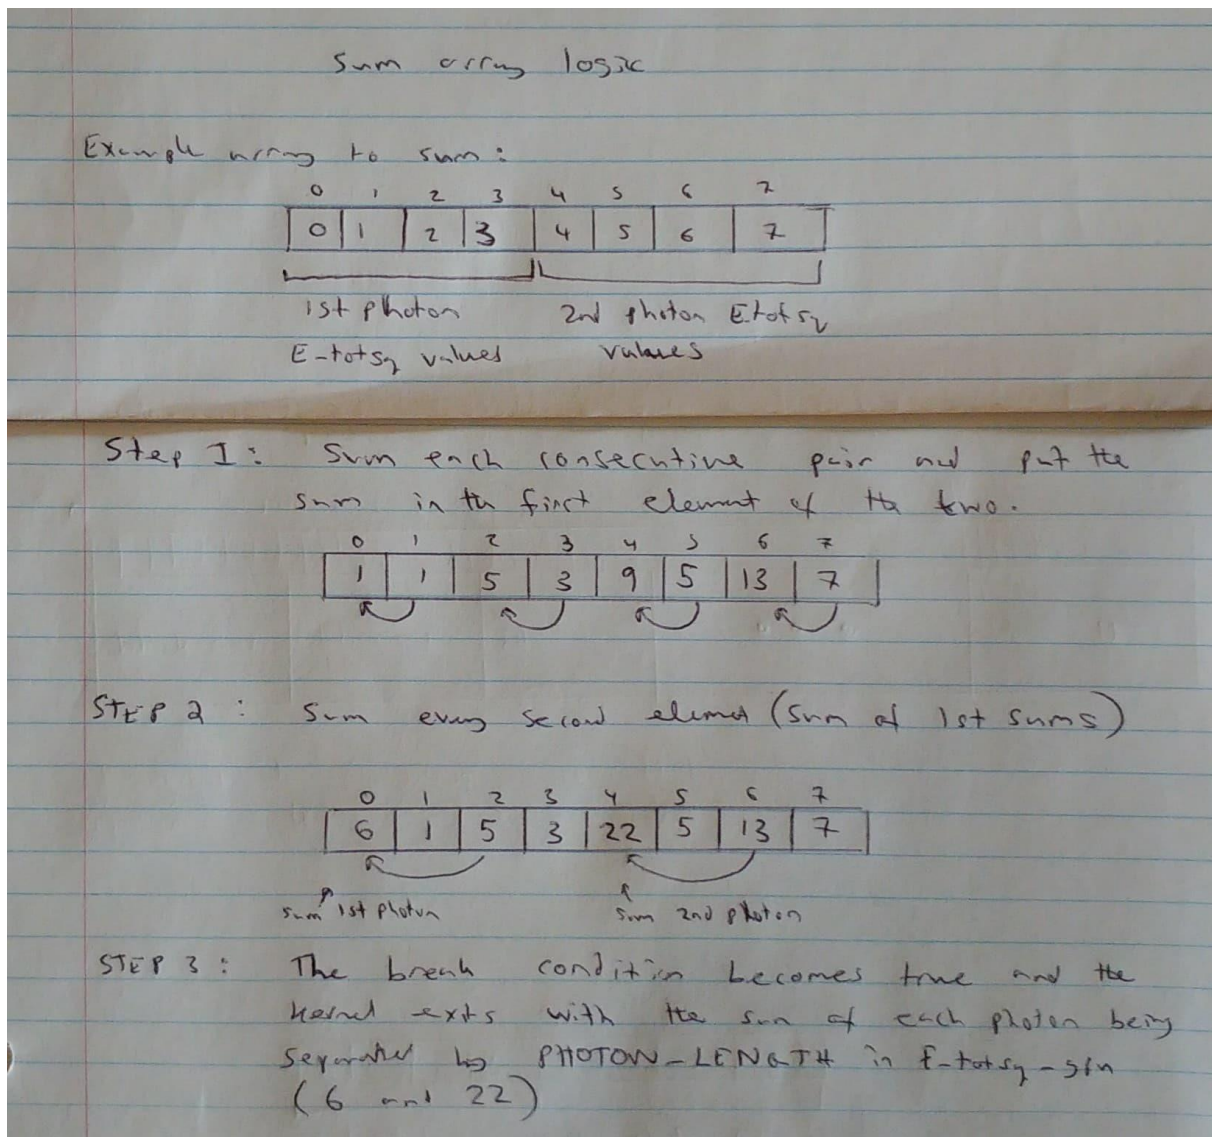 Sum array logic
Example array to sum:
0 1 2 3 4 5 6 7
0 1 2 3 4 5 6 7
1st photon 2nd photon Etotsq
E-totsq values values
Step 1: Sum each consecutive pair and put the
sum in the first element of the two.
0 1 2 3 4 5 6 7
1 1 5 3 9 5 13 7
STEP 2: Sum every second element (sum of 1st sums)
0 1 2 3 4 5 6 7
6 1 5 3 22 5 13 7
sum 1st photon sum 2nd photon
STEP 3: The break condition becomes true and the
kernel exits with the sum of each photon being
separated by PHOTON-LENGTH in E-totsq-
(6 and 22)